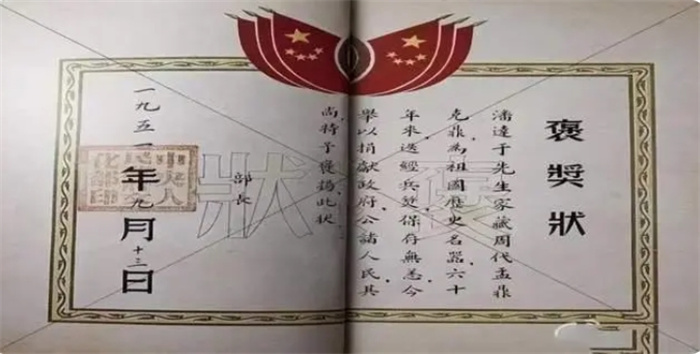 褒獎狀
潘達于先生家藏周代盂鼎
克鼎，為祖國歷史名器，六十
年來，迭經兵燹，保存無恙，今
舉以捐獻政府，公諸人民，其
尚，特予褒揚，此狀
部長
一九五一年九月十三日
褒
狀